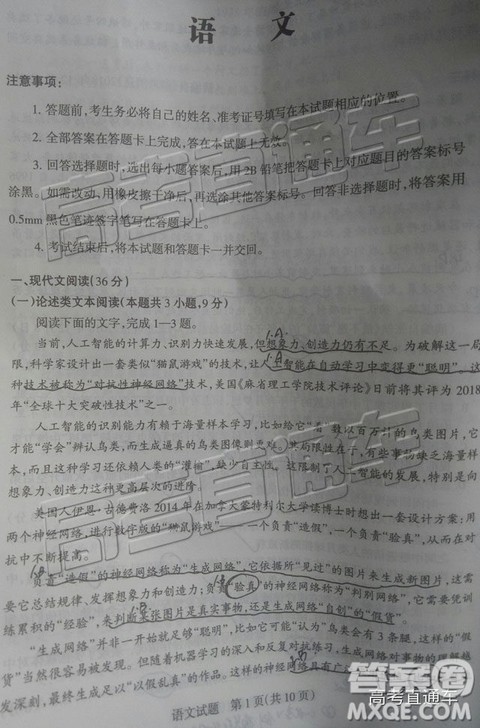 语 文
注意事项：
1. 答题前，考生务必将自己的姓名、准考证号填写在本试题相应的位置。
2. 全部答案在答题卡上完成，答在本试题上无效。
3. 回答选择题时，选出每小题答案后，用 2B 铅笔把答题卡上对应题目的答案标号
涂黑。如需改动，用橡皮擦干净后，再选涂其他答案标号。回答非选择题时，将答案用
0.5mm 黑色笔迹签字笔写在答题卡上。
4. 考试结束后，将本试题和答题卡一并交回。
一、现代文阅读(36 分)
(一)论述类文本阅读(本题共 3 小题，9 分)
阅读下面的文字，完成 1—3 题。
当前，人工智能的计算力、识别力快速发展，但想象力、创造力仍有不足。为破解这一局
限，科学家设计出一套类似“猫鼠游戏”的技术，让人工智能在自动学习中变得更“聪明”，这
种技术被称为“对抗性神经网络”技术，美国《麻省理工学院技术评论》日前将其评为 2018
年“全球十大突破性技术”之一。
人工智能的识别能力有赖于海量样本学习，比如给它“看”数以百万计的鸟类图片，它
才能“学会”辨认鸟类，而生成逼真的鸟类图像则更难。其局限在于，有些事物缺乏海量样
本，而且这种学习还依赖人类的“灌输”，缺少自主性。这限制了人工智能的发展，特别是向
想象力、创造力这种更高层次的进阶。
美国人伊恩·古德费洛 2014 年在加拿大蒙特利尔大学读博士时想出一套设计方案：用
两个神经网络，进行数字版的“猫鼠游戏”——一个负责“造假”，一个负责“验真”，从而在对
抗中不断提高。
负责“造假”的神经网络称为“生成网络”，它依据所“见过”的图片来生成新图片，这需
要它总结规律、发挥想象力和创造力；负责“验真”的神经网络称为“判别网络”，它需要凭训
练累积的“经验”，来判断某张图片是真实事物，还是生成网络“自创”的“假货”。
“生成网络”并非一开始就足够“聪明”，比如它可能“认为”鸟类会有 3 条腿，这样的“假
货”当然很容易被发现。但随着机器学习的深入和反复对抗练习，生成网络对事物的理解越
发深刻，最终生成足以“以假乱真”的作品。这样的神经网络具有了
语文试题 第 1 页(共 10 页)
高考直通车
高考直通车
答案圈
MXQE.COM
高考直通车